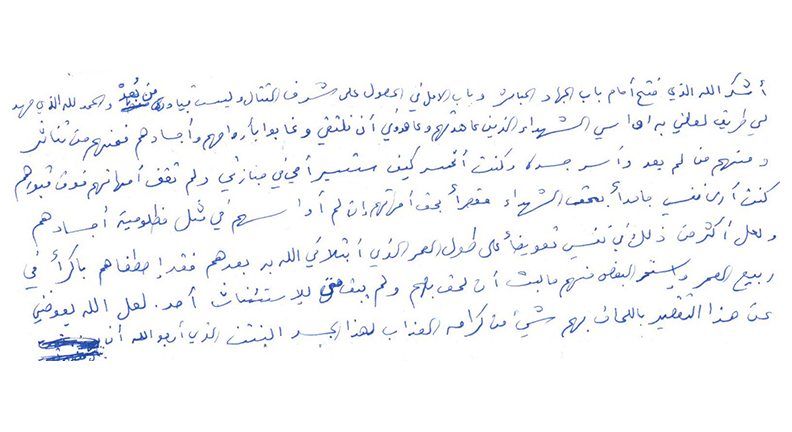 أشكر الله الذي فتح أمام باب الجهاد المباشر وباب الأمل في الحصول على شرف القتال وليست قيادته من بُعد والحمد لله الذي مهد
لي طريق لعلني به اواسي الشهداء الذين عاهدتهم وعاهدوني أن نلتقي وغابوا بأرواحهم وأجسادهم فمنهم من تناثر
ومنهم من لم يعد وأسر جسده وكنت أتحسر كيف ستسير أمي في جنازتي ولم تقف أمهاتهم فوق قبورهم
كنت أرى نفسي جاحداً بحق الشهداء مقصراً بحق أمهاتهم إن لم أواسهم في مثل مظلومية أجسادهم
ولعل أكثر من ذلك في نفسي تعويضاً على طول العمر الذي أبتلاني الله به بعدهم فقد إصطفاهم باكراً في
ربيع العمر البعض منهم ما لبث أن لحق بهم ولم يبقا للاستئناث أحد. لعل الله يعوضني
عن هذا التقصير باللحاق بهم شيئ من كرامه العذاب لهذا الجسد النتن الذي أرجو الله أن